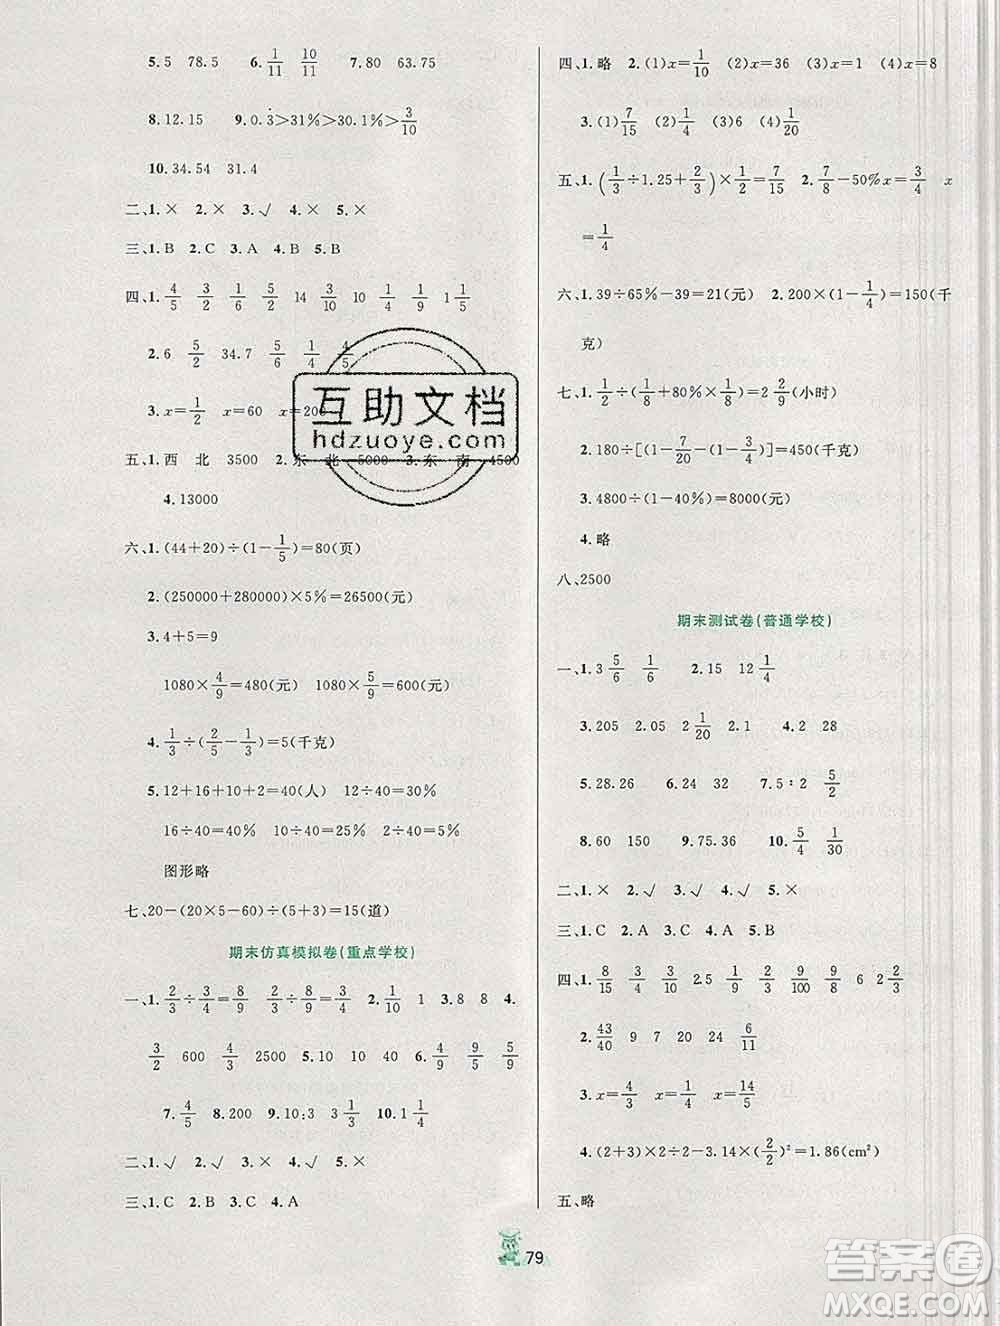 5.5 78.5 6.1/11 10/11 7.80 63.75
8.12.15 9.0.3̇>31%>30.1%>3/10
10.34.54 31.4
二、1.× 2.× 3.√ 4.× 5.×
三、1.B 2.C 3.A 4.B 5.B
四、1.4/5 3/2 1/6 5/2 14 3/10 10 1/4 1/9 1 1/5
2.6 5/2 34.7 5/6 1/4 4/5
3.x=1/2 x=60 x=200
五、1.西 北 3500 2.东 北 5000 3.东 南 4500
4.13000
六、1.(44+20)÷(1−1/5)=80(页)
2.(250000+280000)×5%=26500(元)
3.4+5=9
1080×4/9=480(元) 1080×5/9=600(元)
4.1/3÷(2/5−1/3)=5(千克)
5.12+16+10+2=40(人) 12÷40=30%
16÷40=40% 10÷40=25% 2÷40=5%
图形略
七、20−(20×5−60)÷(5+3)=15(道)
期末仿真模拟卷(重点学校)
一、1.2/3÷3/4=8/9 2/3÷8/9=3/4 2.1/10 1 3.8 8 4.
3/2 600 4/3 2500 5.10 10 40 6.4/9 5/9
7.4/5 8.200 9.10:3 3 1/3 10.1 1/4
二、1.√ 2.√ 3.× 4.× 5.√
三、1.C 2.B 3.C 4.A
四、1.略 2.(1)x=1/10 (2)x=36 (3)x=1 (4)x=8
3.(1)7/15 (2)1/4 (3)6 (4)1/20
五、1.(1/3÷1.25+2/3)×1/2=7/15 2.7/8−50%x=3/4 x
=1/4
六、1.39÷65%−39=21(元) 2.200×(1−1/4)=150(千
克)
七、1.1/2÷(1/8+80%×1/8)=2 2/9(小时)
2.180÷[(1−7/20−(1−3/4)]=450(千克)
3.4800÷(1−40%)=8000(千克)
4.略
八、2500
期末测试卷(普通学校)
一、1.3 5/6 1/6 2.15 12 1/4
3.205 2.05 2 1/20 2.1 4.2 28
5.28.26 6.24 32 7.5:2 5/2
8.60 150 9.75.36 10.5/4 1/30
二、1.× 2.√ 3.√ 4.√ 5.×
三、1.C 2.A 3.C 4.A 5.B
四、1.8/15 3/4 3/10 2.5 1/9 9/100 9/8 6 2/3
2.43/40 9 7 24 6/11
3.x=4/3 x=1/4 x=14/5
4.(2+3)×2÷2−3.14×(2/2)²=1.86(cm²)
五、略
79
互助文档
hdzuoye.com
答案圈
MXQE.COM